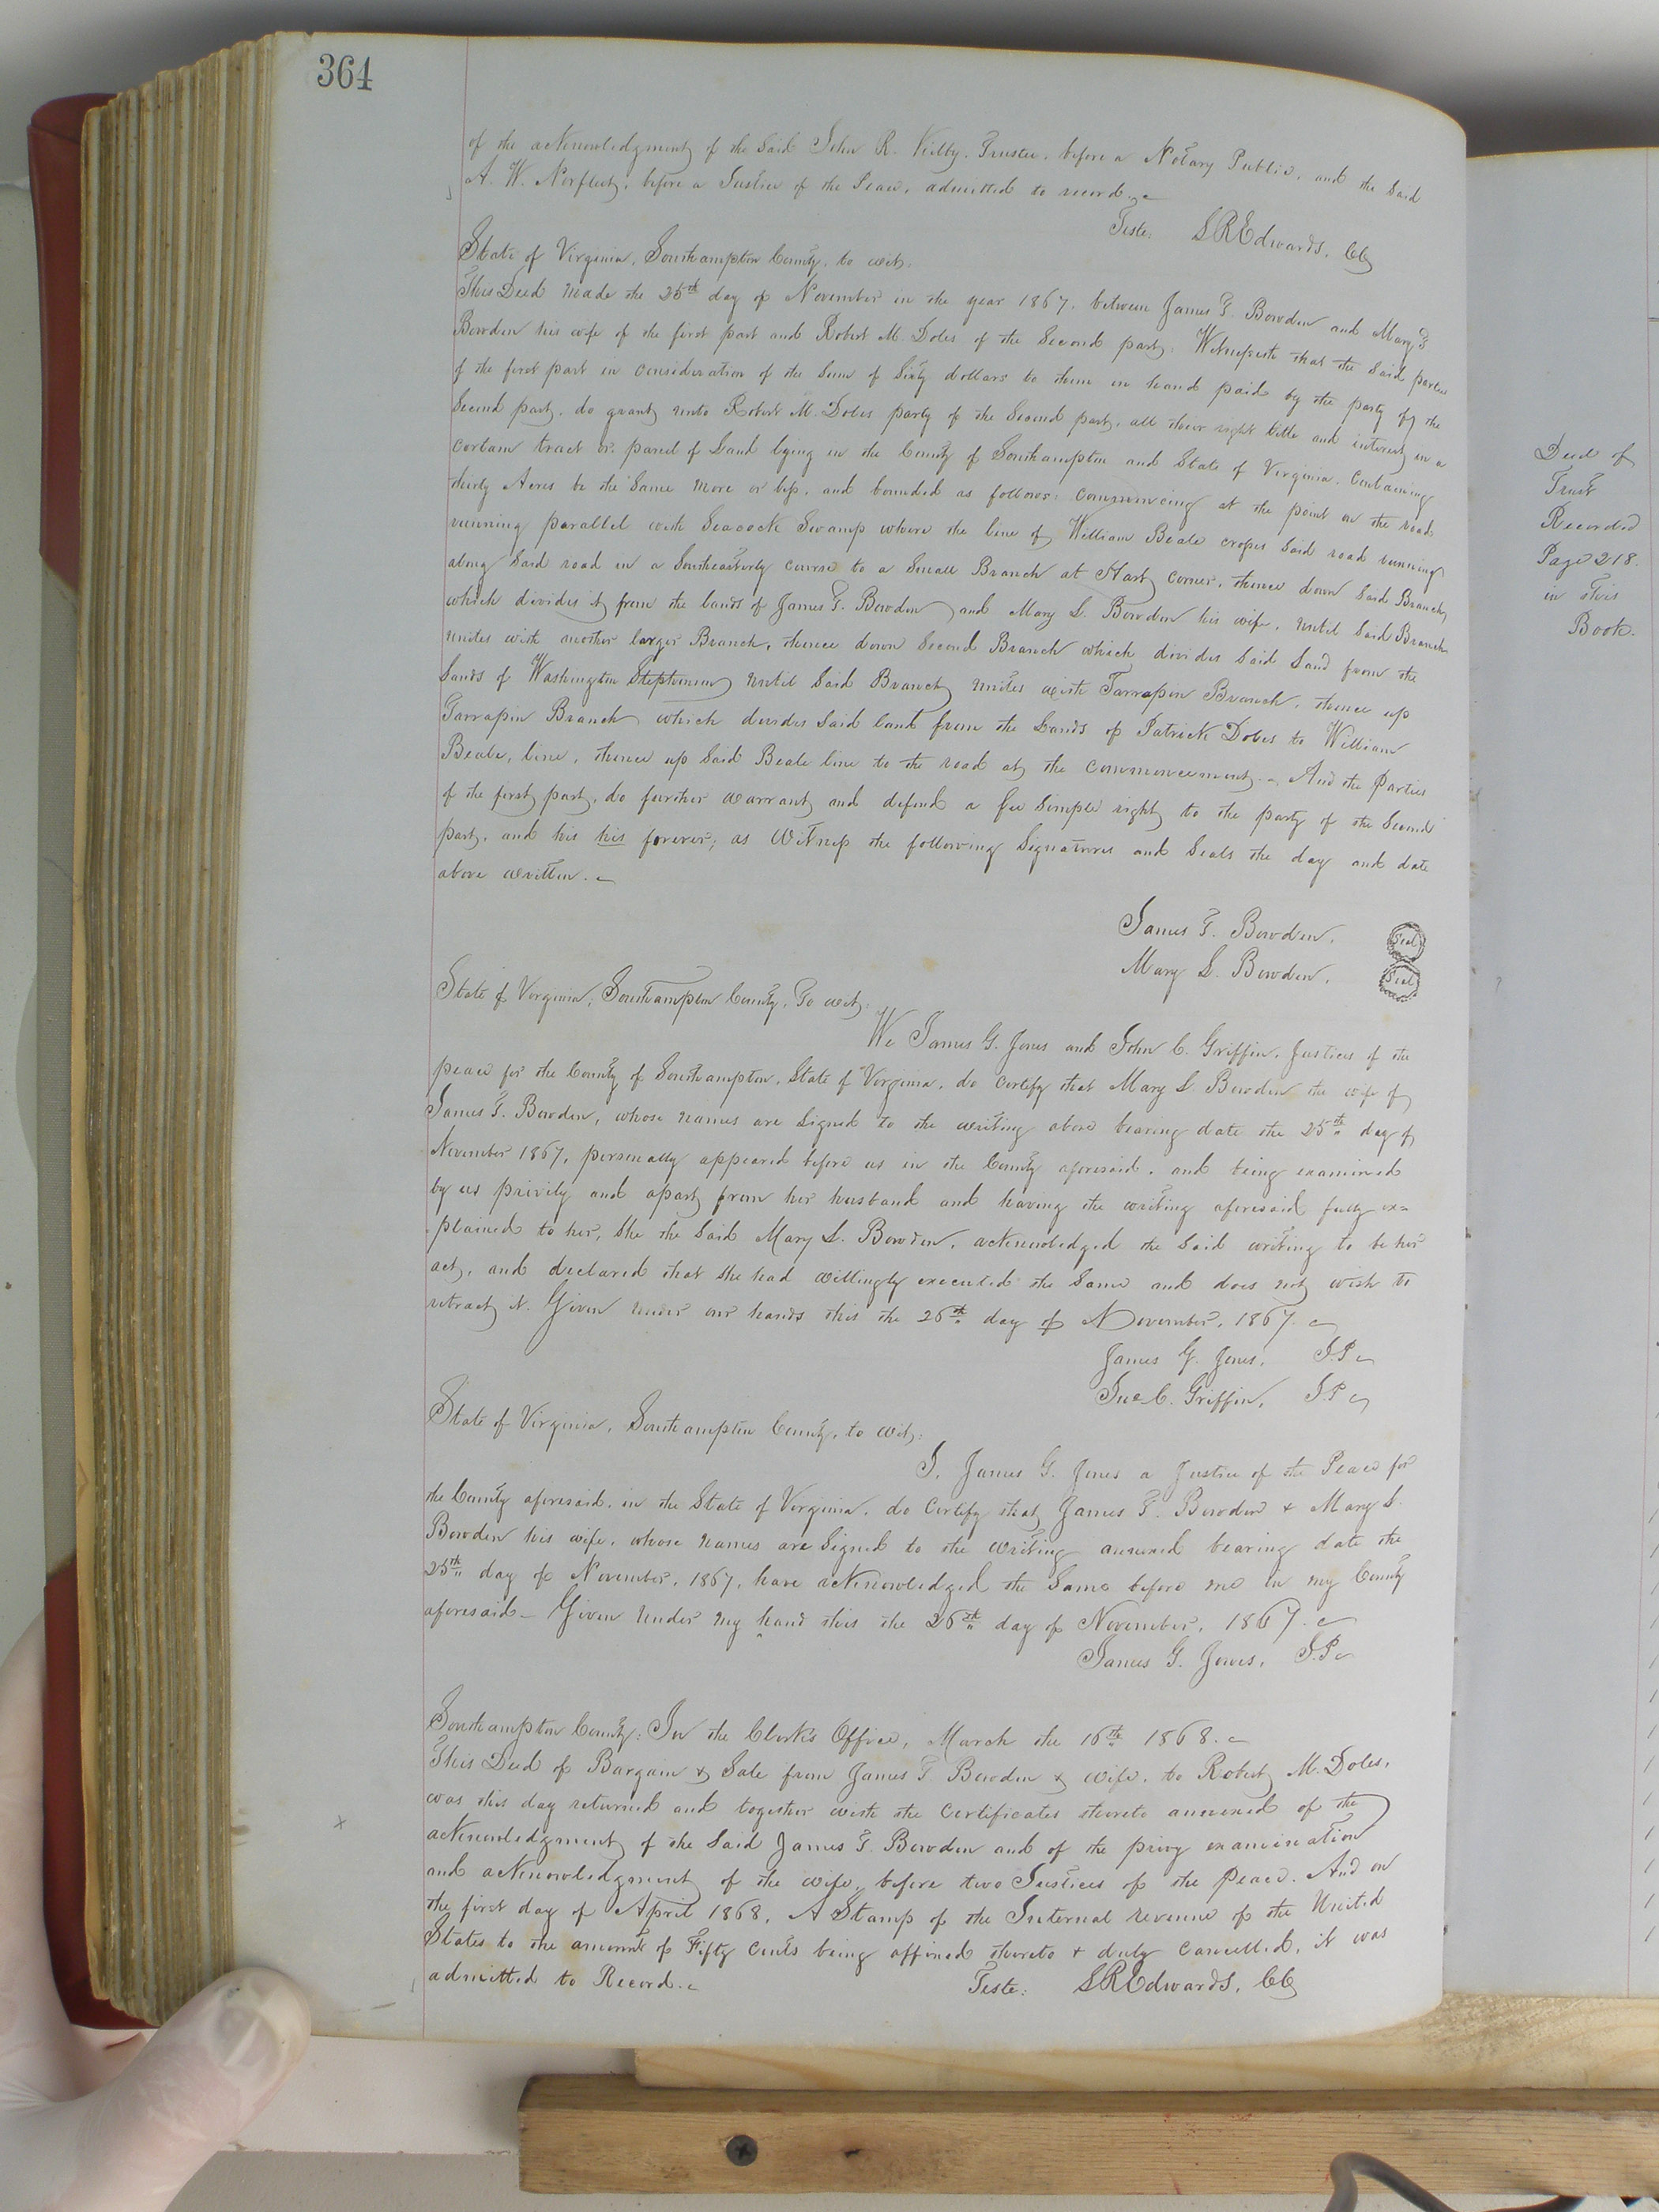 364
of the acknowledgment of the said John R. Kilby, Trustee, before a Notary Public, and the said
A. W. Norfleet, before a Justice of the Peace, admitted to record.
Teste: L R Edwards, CC
State of Virginia, Southampton County, to wit.
This Deed made the 25th day of November in the year 1867, between James T. Bowden and Mary
Bowden his wife of the first part and Robert M. Doles of the Second part, Witnesseth that the said parties
of the first part in consideration of the Sum of Sixty dollars to them in hand paid by the party of the
Second part, do grant unto Robert M. Doles party of the Second part, all their right title and interest in a
certain tract or parcel of Land lying in the County of Southampton and State of Virginia, Containing
thirty Acres be the Same more or less, and bounded as follows: commencing at the point on the road
running parallel with Seacock Swamp where the line of William Beale crosses Said road running
along Said road in a Southeasterly course to a Small Branch at corner, thence down Said Branch
which divides it from the lands of James T. Bowden and Mary L. Bowden his wife, until Said Branch
unites with another larger Branch, thence down Second Branch which divides Said Land from the
Lands of Washington Stephenson until Said Branch unites with Tarrapin Branch, thence up
Tarrapin Branch which divides Said land from the Lands of Patrick Doles to William
Beale, line, thence up Said Beale line to the road at the commencement. And the Parties
of the first part, do further warrant and defend a fee Simple right to the party of the Second
part, and his his forever; as Witness the following Signatures and Seals the day and date
above written.
James T. Bowden, Seal
Mary L. Bowden, Seal
State of Virginia, Southampton County, To wit:
We James G. Jones and John C. Griffin, Justices of the
peace for the County of Southampton, State of Virginia, do certify that Mary L Bowden the wife of
James T. Bowden, whose names are Signed to the writing above bearing date the 25th day of
November 1867, personally appeared before us in the County aforesaid, and being examined
by us privily and apart from her husband and having the writing aforesaid fully ex=
plained to her, She the Said Mary L. Bowden, acknowledged the Said writing to be her
act, and declared that She had willingly executed the Same and does not wish to
retract it. Given under our hands this the 26th day of November, 1867.
James G. Jones, J.P
Jno C. Griffin, J.P
State of Virginia, Southampton County, to wit:
I, James G. Jones a Justice of the Peace for
the County aforesaid, in the State of Virginia, do Certify that James T. Bowden & Mary L.
Bowden his wife, whose names are Signed to the writing annexed bearing date the
25th day of November, 1867, have acknowledged the Same before me in my County
aforesaid. Given under my hand this the 26th day of November, 1867.
James G. Jones, J.P
Southampton County: In the Clerk's Office, March the 16th 1868.
This Deed of Bargain & Sale from James T Bowden & wife, to Robert M. Doles,
was this day returned and together with the Certificates thereto annexed of the
acknowledgment of the Said James T. Bowden and of the privy examination
and acknowledgment of the wife, before two Justices of the Peace. And on
the first day of April 1868, A Stamp of the Internal revenue of the United
States to the amount of Fifty Cents being affixed thereto & duly cancelled, it was
admitted to Record.
Teste: L R Edwards, CC
Deed of
Trust
Recorded
Page 218.
in this
Book.